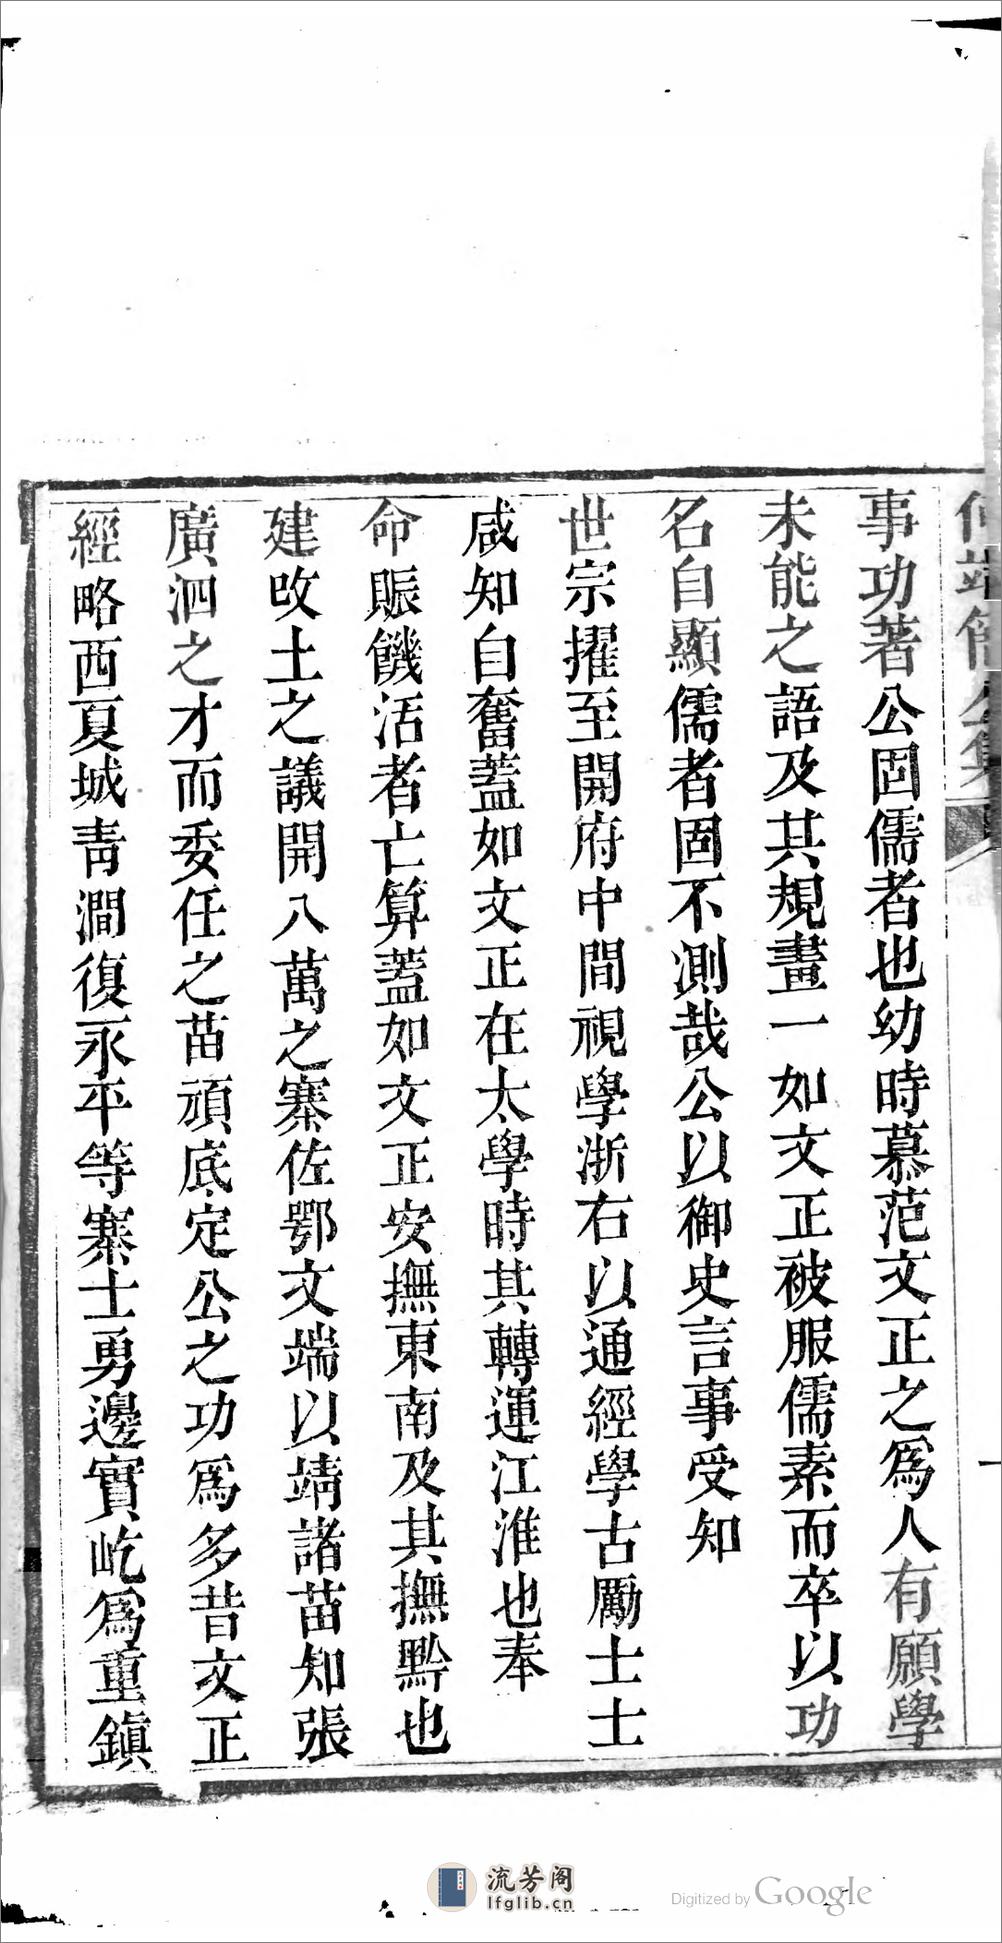 事功著公固儒者也幼時慕范文正之爲人有願學
未能之語及其規畫一如文正被服儒素而卒以功
名自顯儒者固不測哉公以御史言事受知
世宗擢至開府中間視學浙右以通經學古勵士士
咸知自奮蓋如文正在太學時其轉運江淮也奉
命賑饑活者亡算蓋如文正安撫東南及其撫黔也
建改土之議開八萬之寨佐鄂文端以靖諸苗知張
廣泗之才而委任之苗頑底定公之功爲多昔文正
經略西夏城青澗復永平等寨士勇邊實屹爲重鎮
流芳阁
lfglib.cn
Digitized by Google